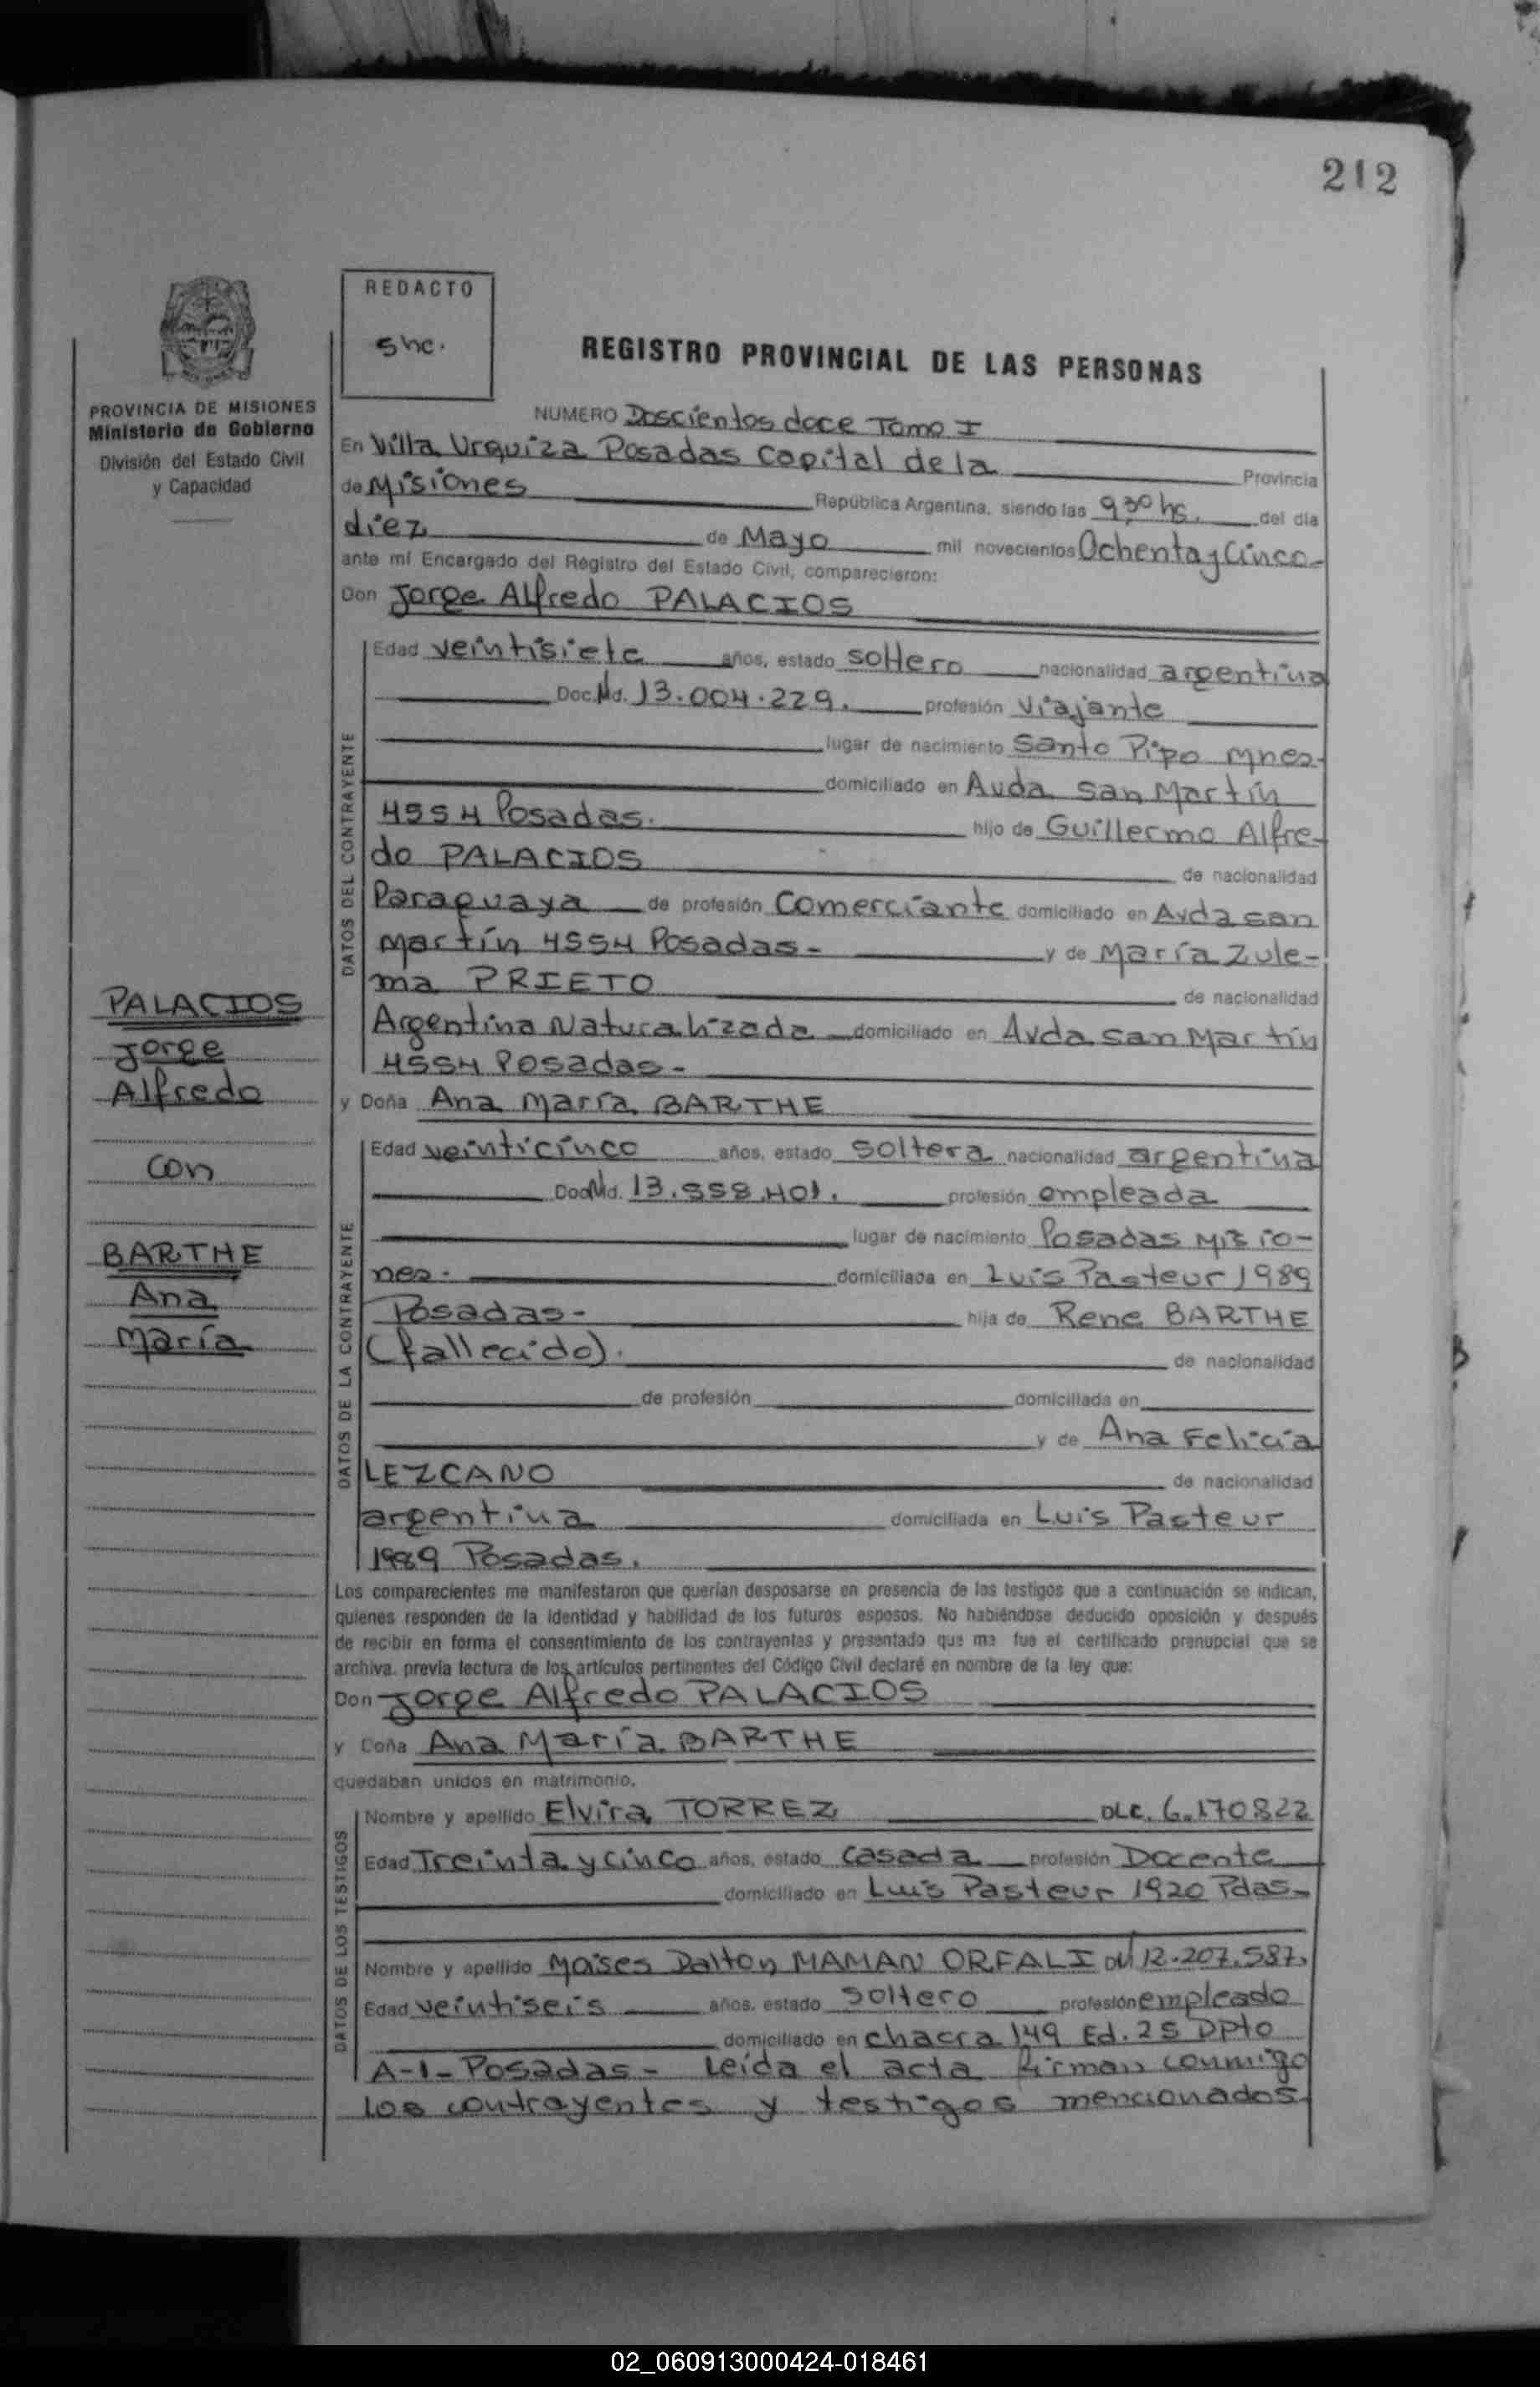 212
REDACTO
shc.
PROVINCIA DE MISIONES
Ministerio de Gobierno
División del Estado Civil
y Capacidad
REGISTRO PROVINCIAL DE LAS PERSONAS
NUMERO Doscientos doce Tomo I
En Villa Urquiza Posadas Capital de la Provincia
de Misiones República Argentina, siendo las 9,30 hs. del día
diez de Mayo mil novecientos Ochenta y Cinco-
ante mí Encargado del Registro del Estado Civil, comparecieron:
Don Jorge Alfredo PALACIOS
DATOS DEL CONTRAYENTE
Edad veintisiete años, estado soltero nacionalidad argentina
Doc. Nd. 13.004.229. profesión viajante
lugar de nacimiento Santo Pipo Mnes-
domiciliado en Avda San Martín
4554 Posadas. hijo de Guillermo Alfre-
do PALACIOS de nacionalidad
Paraguaya de profesión Comerciante domiciliado en Avda San
Martín 4554 Posadas- y de María Zule-
ma PRIETO de nacionalidad
Argentina Naturalizada domiciliado en Avda San Martín
4554 Posadas-
y Doña Ana María BARTHE
DATOS DE LA CONTRAYENTE
Edad veinticinco años, estado soltera nacionalidad argentina
Doc Nd. 13.558.401. profesión empleada
lugar de nacimiento Posadas Misio-
nes. domiciliada en Luis Pasteur 1989
Posadas- hija de Rene BARTHE
(fallecido). de nacionalidad
de profesión domiciliada en
y de Ana Felicia
LEZCANO de nacionalidad
argentina domiciliada en Luis Pasteur
1989 Posadas.
Los comparecientes me manifestaron que querían desposarse en presencia de los testigos que a continuación se indican,
quienes responden de la identidad y habilidad de los futuros esposos. No habiéndose deducido oposición y después
de recibir en forma el consentimiento de los contrayentes y presentado que me fue el certificado prenupcial que se
archiva, previa lectura de los artículos pertinentes del Código Civil declaré en nombre de la ley que:
Don Jorge Alfredo PALACIOS
y Doña Ana María BARTHE
quedaban unidos en matrimonio.
DATOS DE LOS TESTIGOS
Nombre y apellido Elvira TORREZ DLC. 6.170822
Edad Treinta y cinco años, estado casada profesión Docente
domiciliado en Luis Pasteur 1920 Pdas-
Nombre y apellido Moises Dalton MAMAN ORFALI 12.207.587.
Edad veintiseis años, estado soltero profesión empleado
domiciliado en chacra 149 Ed. 25 Dpto
A-1- Posadas- Leída el acta firman conmigo
los contrayentes y testigos mencionados
PALACIOS
Jorge
Alfredo
con
BARTHE
Ana
María
02_060913000424-018461